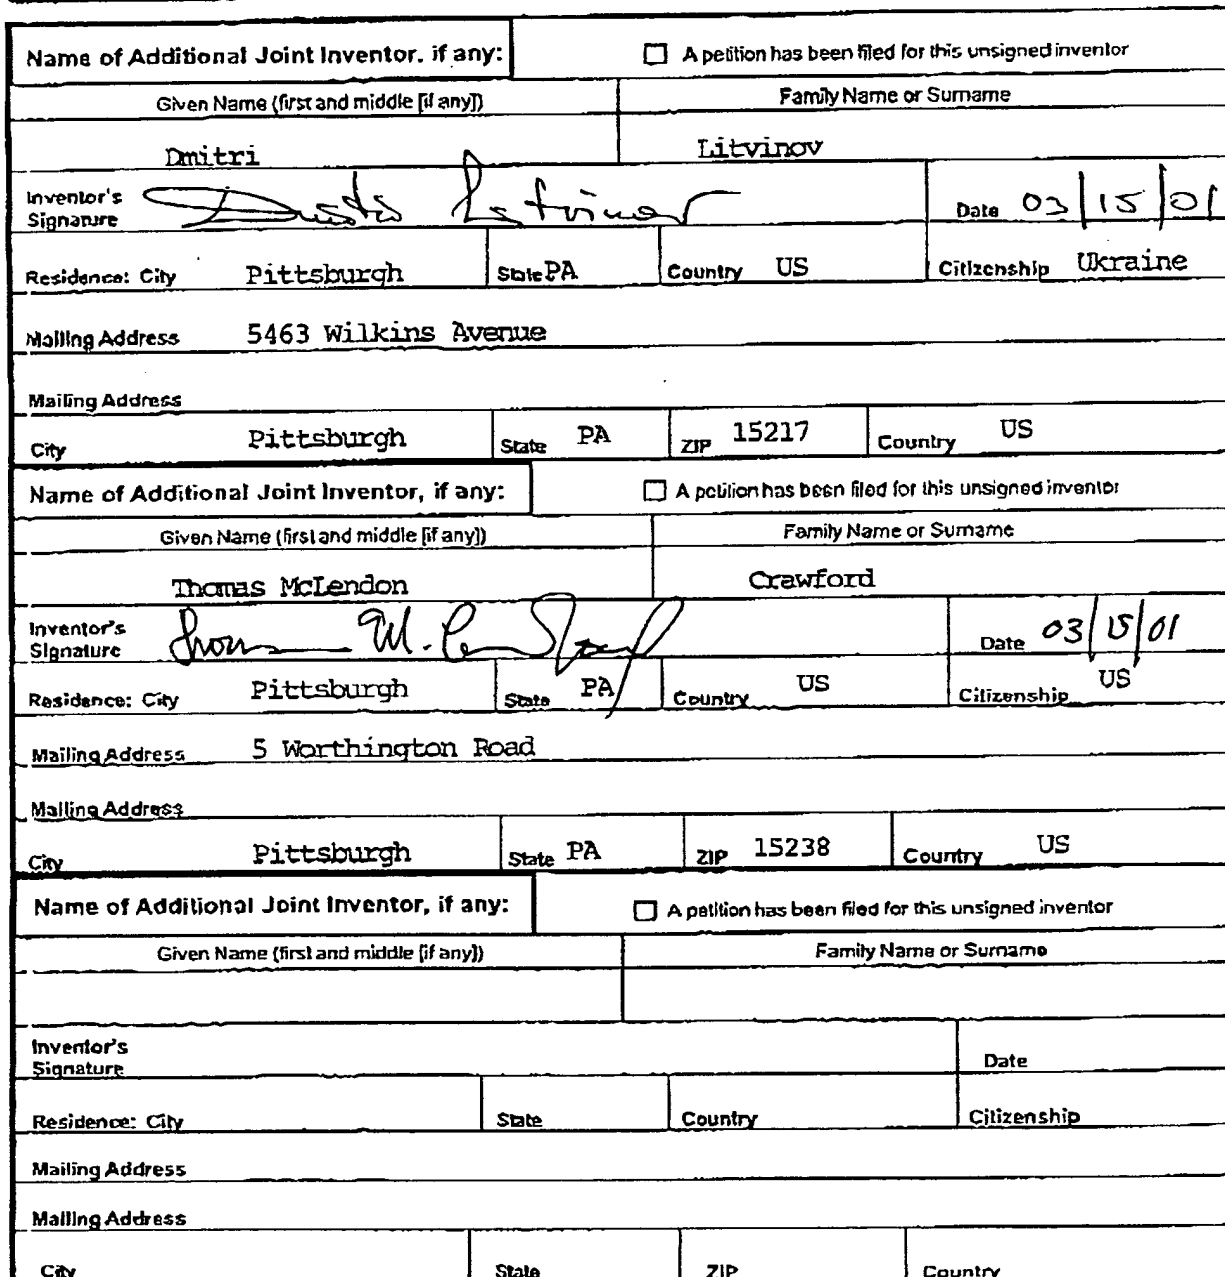 Name of Additional Joint Inventor, if any: A petition has been filed for this unsigned inventor
Given Name (first and middle [if any]) Family Name or Surname
Dmitri Litvinov
Inventor's Signature Dmitri Litvinov Date 03/15/01
Residence: City Pittsburgh State PA Country US Citizenship Ukraine
Mailing Address 5463 Wilkins Avenue
Mailing Address
City Pittsburgh State PA ZIP 15217 Country US
Name of Additional Joint Inventor, if any: A petition has been filed for this unsigned inventor
Given Name (first and middle [if any]) Family Name or Surname
Thomas McLendon Crawford
Inventor's Signature Thomas M. Crawford Date 03/15/01
Residence: City Pittsburgh State PA Country US Citizenship US
Mailing Address 5 Worthington Road
Mailing Address
City Pittsburgh State PA ZIP 15238 Country US
Name of Additional Joint Inventor, if any: A petition has been filed for this unsigned inventor
Given Name (first and middle [if any]) Family Name or Surname
Inventor's Signature Date
Residence: City State Country Citizenship
Mailing Address
Mailing Address
City State ZIP Country